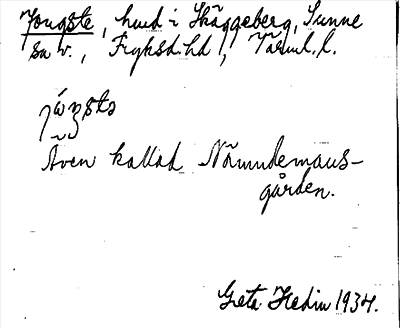 Jongste, hmd i Skäggeberg, Sunne
sn v., Fryksd. hd, Värml. l.
Även kallad Nämndemans-
gården.
Greta Hedin 1934.